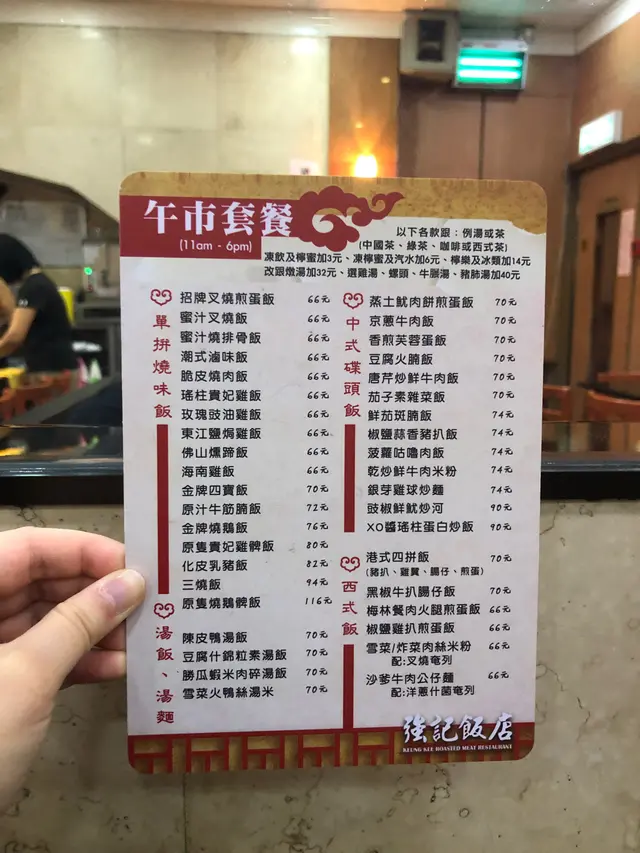 午市套餐
(11am - 6pm)
以下各款跟：例湯或茶
(中國茶、綠茶、咖啡或西式茶)
凍飲及檸蜜加3元、凍檸蜜及汽水加6元、檸樂及冰類加14元
改跟燉湯加32元、選雞湯、螺頭、牛𦟌湯、豬肺湯加40元
單拼燒味飯
招牌叉燒煎蛋飯 66元
蜜汁叉燒飯 66元
蜜汁燒排骨飯 66元
潮式滷味飯 66元
脆皮燒肉飯 66元
瑤柱貴妃雞飯 66元
玫瑰豉油雞飯 66元
東江鹽焗雞飯 66元
佛山燻蹄飯 66元
海南雞飯 66元
金牌四寶飯 70元
原汁牛筋腩飯 72元
金牌燒鵝飯 76元
原隻貴妃雞髀飯 80元
化皮乳豬飯 82元
三燒飯 94元
原隻燒鵝髀飯 116元
湯飯、湯麵
陳皮鴨湯飯 70元
豆腐什錦粒素湯飯 70元
勝瓜蝦米肉碎湯飯 70元
雪菜火鴨絲湯米 70元
中式碟頭飯
蒸土魷肉餅煎蛋飯 70元
京蔥牛肉飯 70元
香煎芙蓉蛋飯 70元
豆腐火腩飯 70元
唐芹炒鮮牛肉飯 70元
茄子素雜菜飯 70元
鮮茄斑腩飯 74元
椒鹽蒜香豬扒飯 74元
菠蘿咕嚕肉飯 74元
乾炒鮮牛肉米粉 74元
銀芽雞球炒麵 74元
豉椒鮮魷炒河 90元
XO醬瑤柱蛋白炒飯 90元
西式飯
港式四拼飯 70元
(豬扒、雞翼、腸仔、煎蛋)
黑椒牛扒腸仔飯 70元
梅林餐肉火腿煎蛋飯 66元
椒鹽雞扒煎蛋飯 66元
雪菜/炸菜肉絲米粉 66元
配:叉燒奄列
沙爹牛肉公仔麵 66元
配:洋蔥什菌奄列
強記飯店
KEUNG KEE ROASTED MEAT RESTAURANT